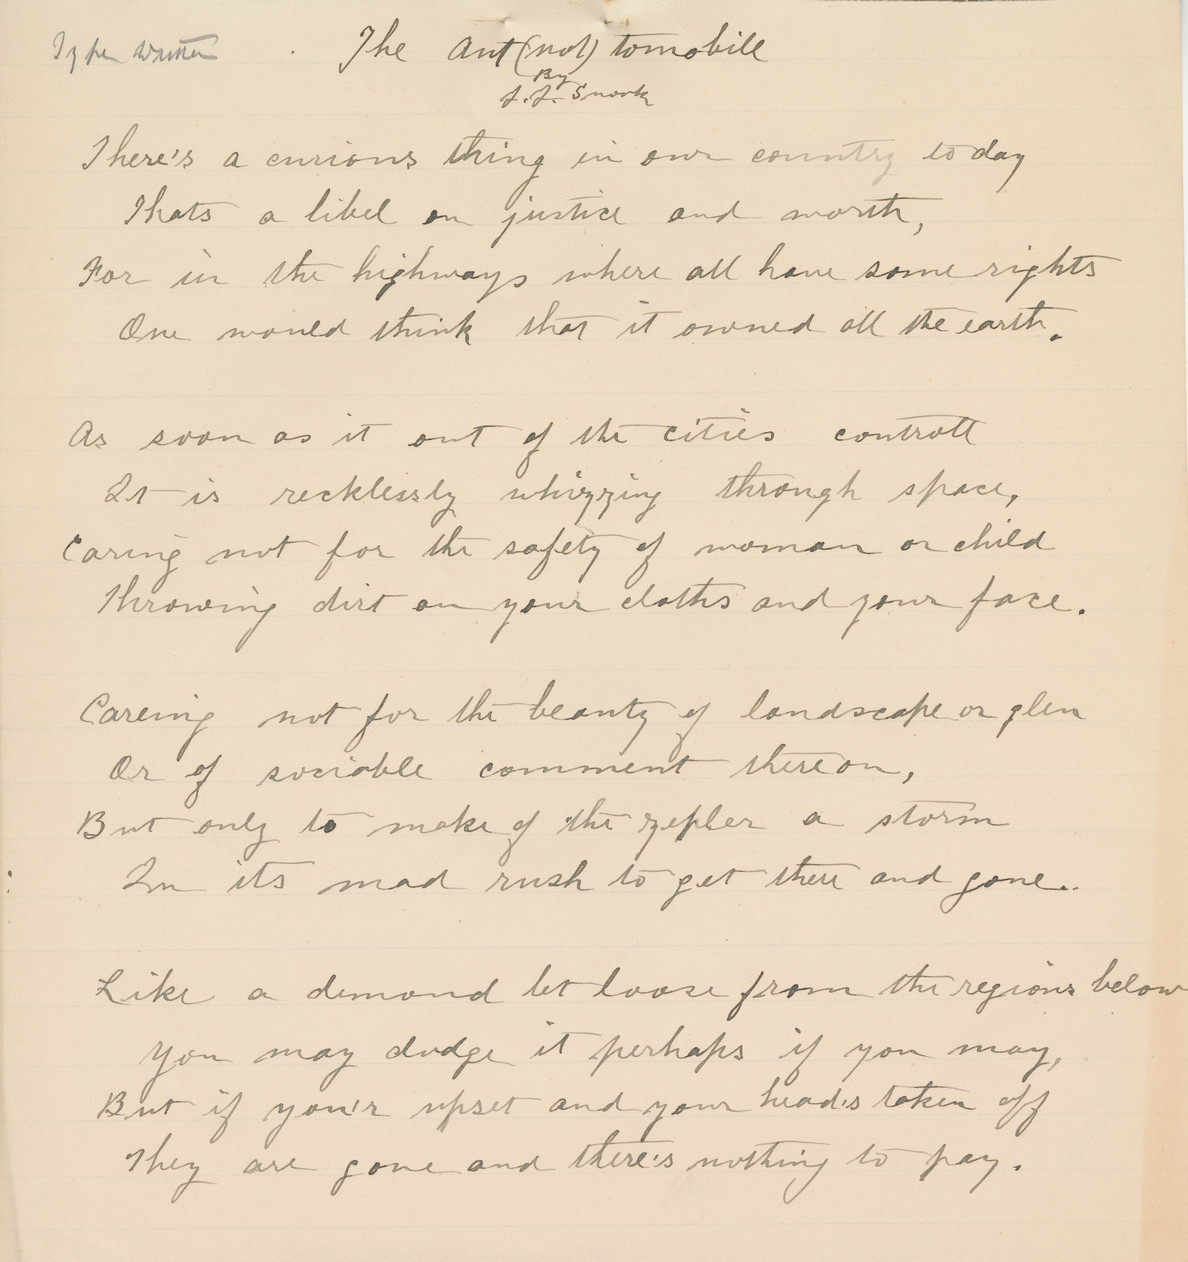 Type written
The Aut(not) tomobile
By
J. J. Snook
There's a curious thing in our country to day
Thats a libel on justice and worth,
For in the highways where all have some rights
One would think that it owned all the earth.
As soon as it out of the cities controll
It is recklessly whizzing through space,
Caring not for the safety of woman or child
Throwing dirt on your cloths and your face.
Careing not for the beauty of landscape or glen
Or of sociable comment thereon,
But only to make of the zepher a storm
In its mad rush to get there and gone.
Like a demond let loose from the regions below
You may dodge it perhaps if you may,
But if you'r upset and your head's taken off
They are gone and there's nothing to pay.